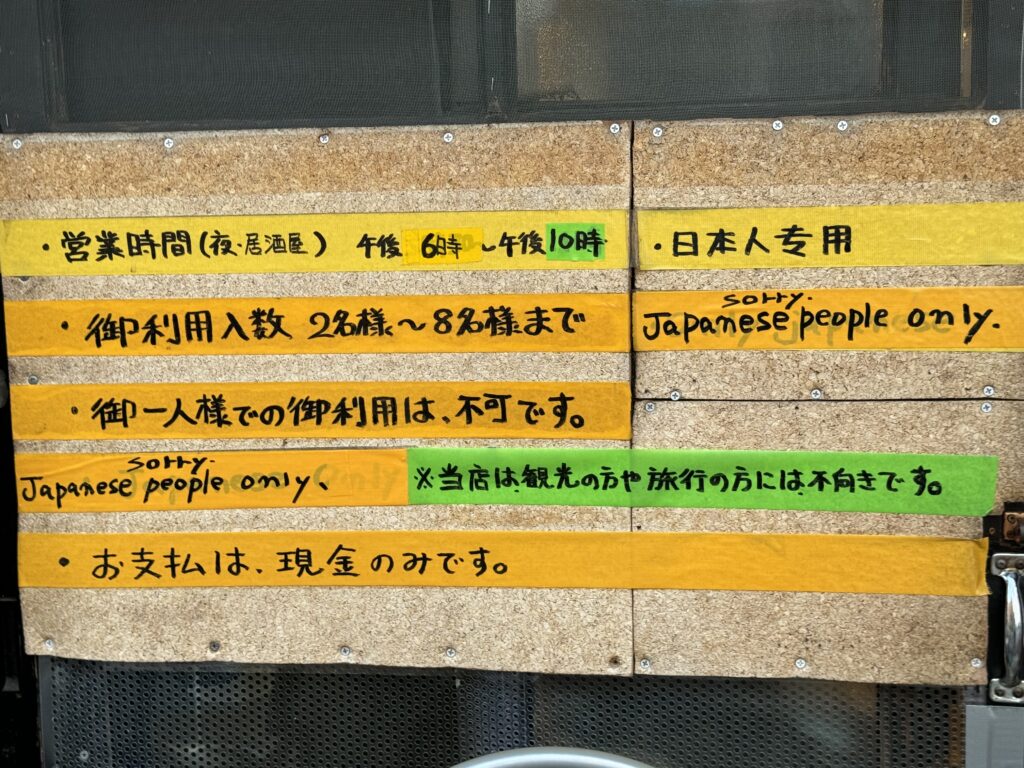 ・営業時間(夜・居酒屋) 午後 6時 〜午後 10時
・御利用入数 2名様〜8名様まで
・御一人様での御利用は、不可です。
sorry.
Japanese people only、
※当店は、観光の方や旅行の方には、不向きです。
・お支払は、現金のみです。
・日本人专用
sorry.
Japanese people only.